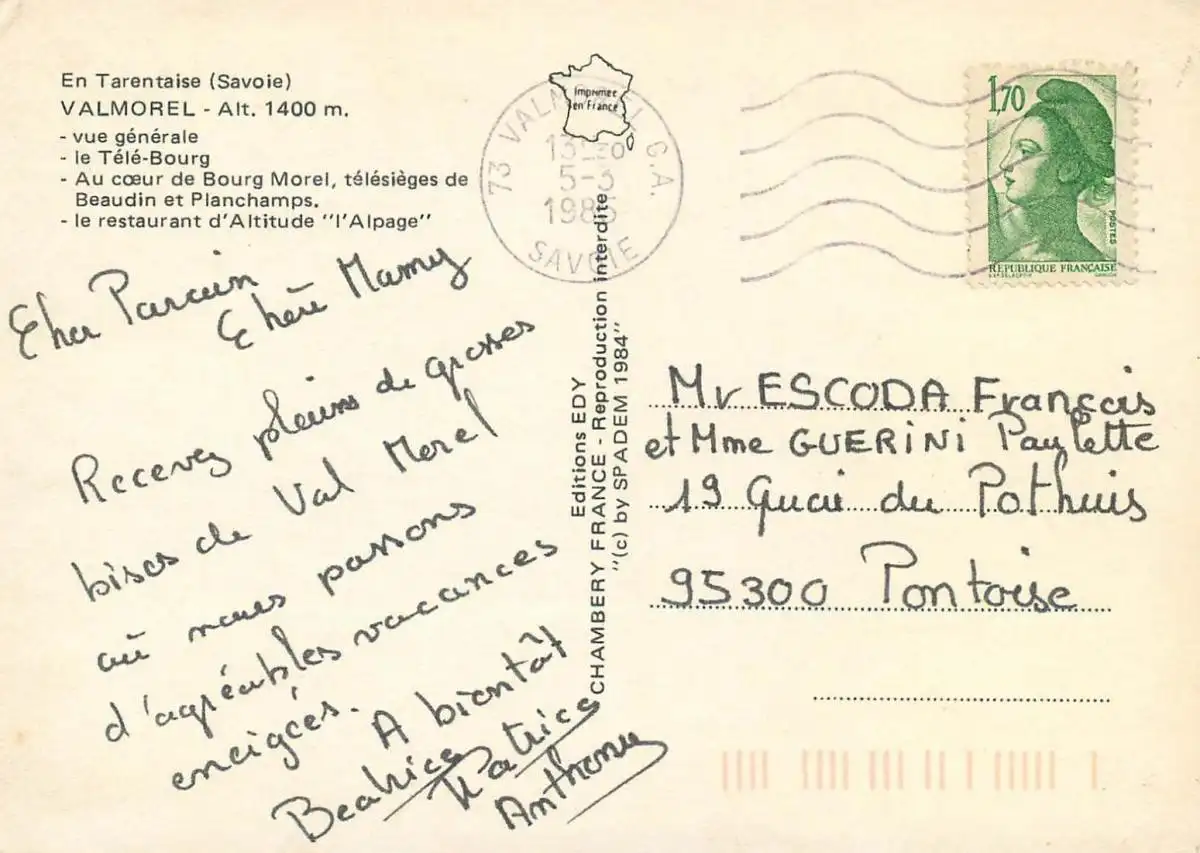 En Tarentaise (Savoie)
VALMOREL - Alt. 1400 m.
- vue générale
- le Télé-Bourg
- Au cœur de Bourg Morel, télésièges de
Beaudin et Planchamps.
- le restaurant d'Altitude "l'Alpage"
Cher Parain
Chère Mamy
Recevez pleins de grosses
bises de Val Morel
où nous passons
d'agréables vacances
eneigées.
A bientôt
Beatrice
Patrice
Anthony
Imprimée
en France
73 VALMOREL C.A.
5-3
SAVOIE
Editions EDY
CHAMBERY FRANCE - Reproduction interdite
"(c) by SPADEM 1984"
1,70
POSTES
RÉPUBLIQUE FRANÇAISE
Mr ESCODA François
et Mme GUERINI Paulette
19 Quai du Pothuis
95300 Pontoise